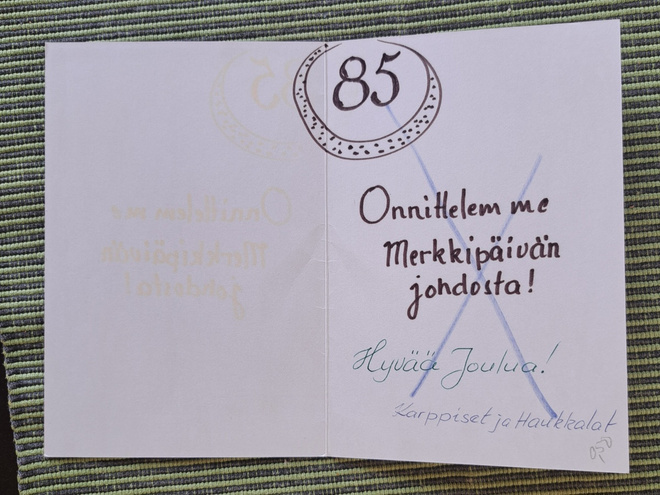 85
Onnittelem me
Merkkipäivän
johdosta!
Hyvää Joulua!
Karppiset ja Haukkalat